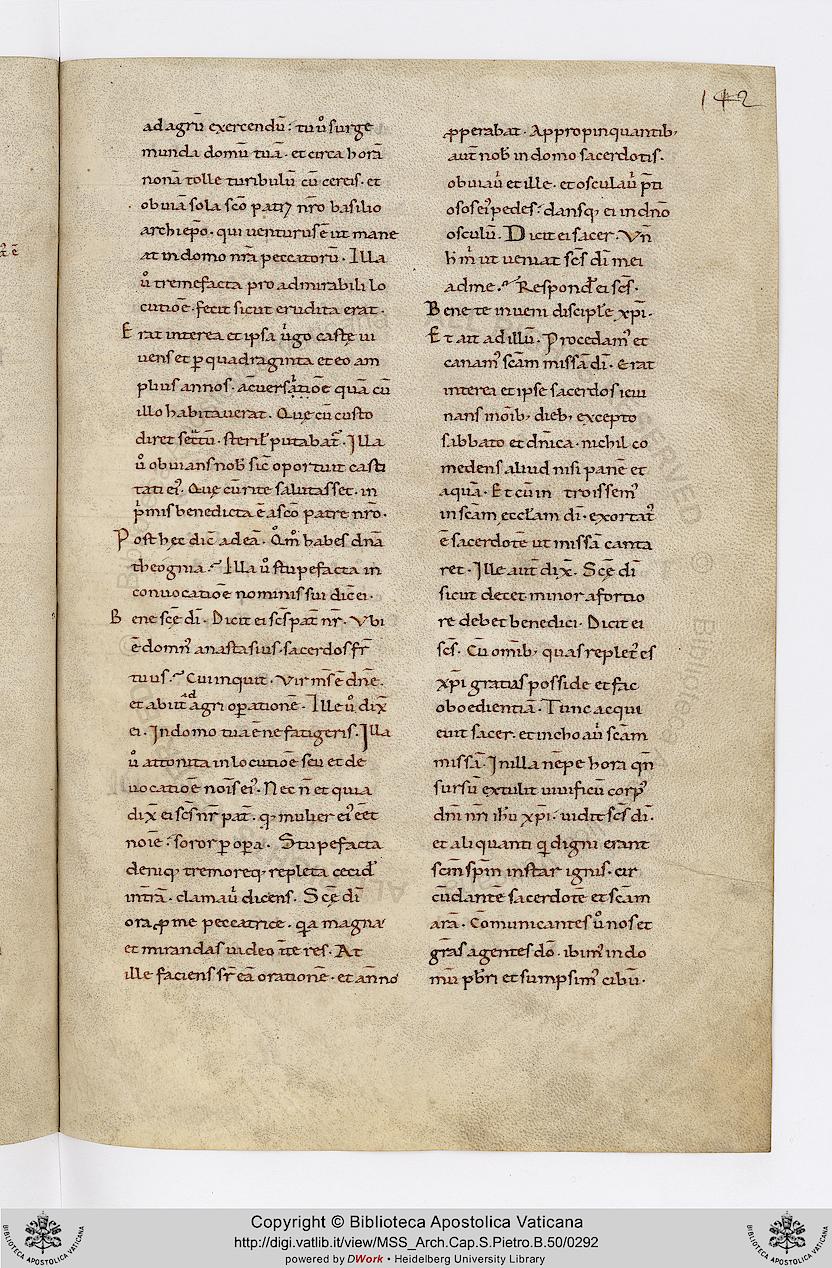 142
ad agrū exercendū : tu ů surge
munda domū tuā · et circa horā
nonā tolle turibulū cū cereis · et
obuiā sola sc̄o patri nr̄o basilio
archiep̄o · qui uenturus ē ut mane
at in domo nr̄a peccatorū · Illa
ů tremefacta pro admirabili lo
cutiōe · fecit sicut erudita erat ·
Erat interea et ipsa uͥgo caste ui
uens et ꝑ quadraginta et eo am
plius annos · a cuersatiōe quā cū
illo habitauerat · Quę cū custo
diret sectū · steril putabat̄ · Illa
ů obuians nob̄ sic̄ oportuit casti
tati ei᾽ · Quę cū rite salutasset · in
pͥmis benedicta ē a sc̄o patre nr̄o ·
Post hęc dic̄ ad eā · Qm̊ habes dn̄a
theogina · Illa ů stupefacta in
conuocatiōe nominis sui dic̄ ei ·
Bene sc̄ę dī · Dicit ei sc̄s pat̄ nr̄ · Vbi
ē domn᾽ anastasius · sacerdos fr̄
tuus · Cui inquit · Vir m̄s ē dn̄e ·
et abiit ad agri oꝑationē · Ille ů dix̄
ei · In domo tua ē ne fatigeris · Illa
ů attonita in locutiōe su et de
uocatiōe nōis ei᾽ · Nec n̄ et quia
dix̄ ei sc̄s nr̄ pat̄ · q᾽ mulier ei᾽ eēt
noīe : soror ꝑ oꝑa · Stupefacta
deniq; tremoreq; repleta cecid̄
in tr̄a · clamau̇ dicens · Sc̄ę dī
ora ꝓ me peccatrice · qͣa magna
et miranda uideo in te res · At
ille faciens sr̄ eā orationē · et an̄no
ꝓperabat · Appropinquantib;
aut̄ nob̄ in domo sacerdotis ·
obuiau̇ et ille · et osculau̇ pͥ̄ti
os os ei᾽ pedes : dansq; ei in dn̄o
osculū · Dicit ei sacer · Vn̄
h m̄ ut ueniat sc̄s dī mei
ad me · Respond̄ ei sc̄s ·
Bene te inueni disciple xp̄i ·
Et ait ad illū · Procedam᾽ et
canam᾽ sc̄am missā dī · Erat
interea et ipse sacerdos ieiu
nans mōib; dieb; excepto
sabbato et dn̄ica · nichil co
medens aliud nisi panē et
aquā · Et cū in troissem᾽
in sc̄am eccl̄am dī · exortat̄
ē sacerdotē ut missā canta
ret · Ille aut̄ dix̄ · Sc̄ę dī
sicut decet minor a fortio
re debet benedici · Dicit ei
sc̄s · Cū om̄ib; quas replet᾽ es
xp̄i gratias posside et fac
oboedientiā · Tunc acqui
euit sacer · et inchoau̇ sc̄am
missā · In illa nēpe hora qn̄
sursū extulit uiuificū corp᾽
dn̄i nr̄i ih̄u xp̄i · uidit sc̄s dī ·
et aliquanti qͥ digni erant
sc̄m sp̄m instar ignis · cir
cūdantē sacerdotē et sc̄am
arā · Cōmunicantes ů nos et
gr̄as agentes dō · ibim᾽ in do
mū p̄bri et sumpsim᾽ cibū ·
Copyright © Biblioteca Apostolica Vaticana
http://digi.vatlib.it/view/MSS_Arch.Cap.S.Pietro.B.50/0292
powered by DWork • Heidelberg University Library